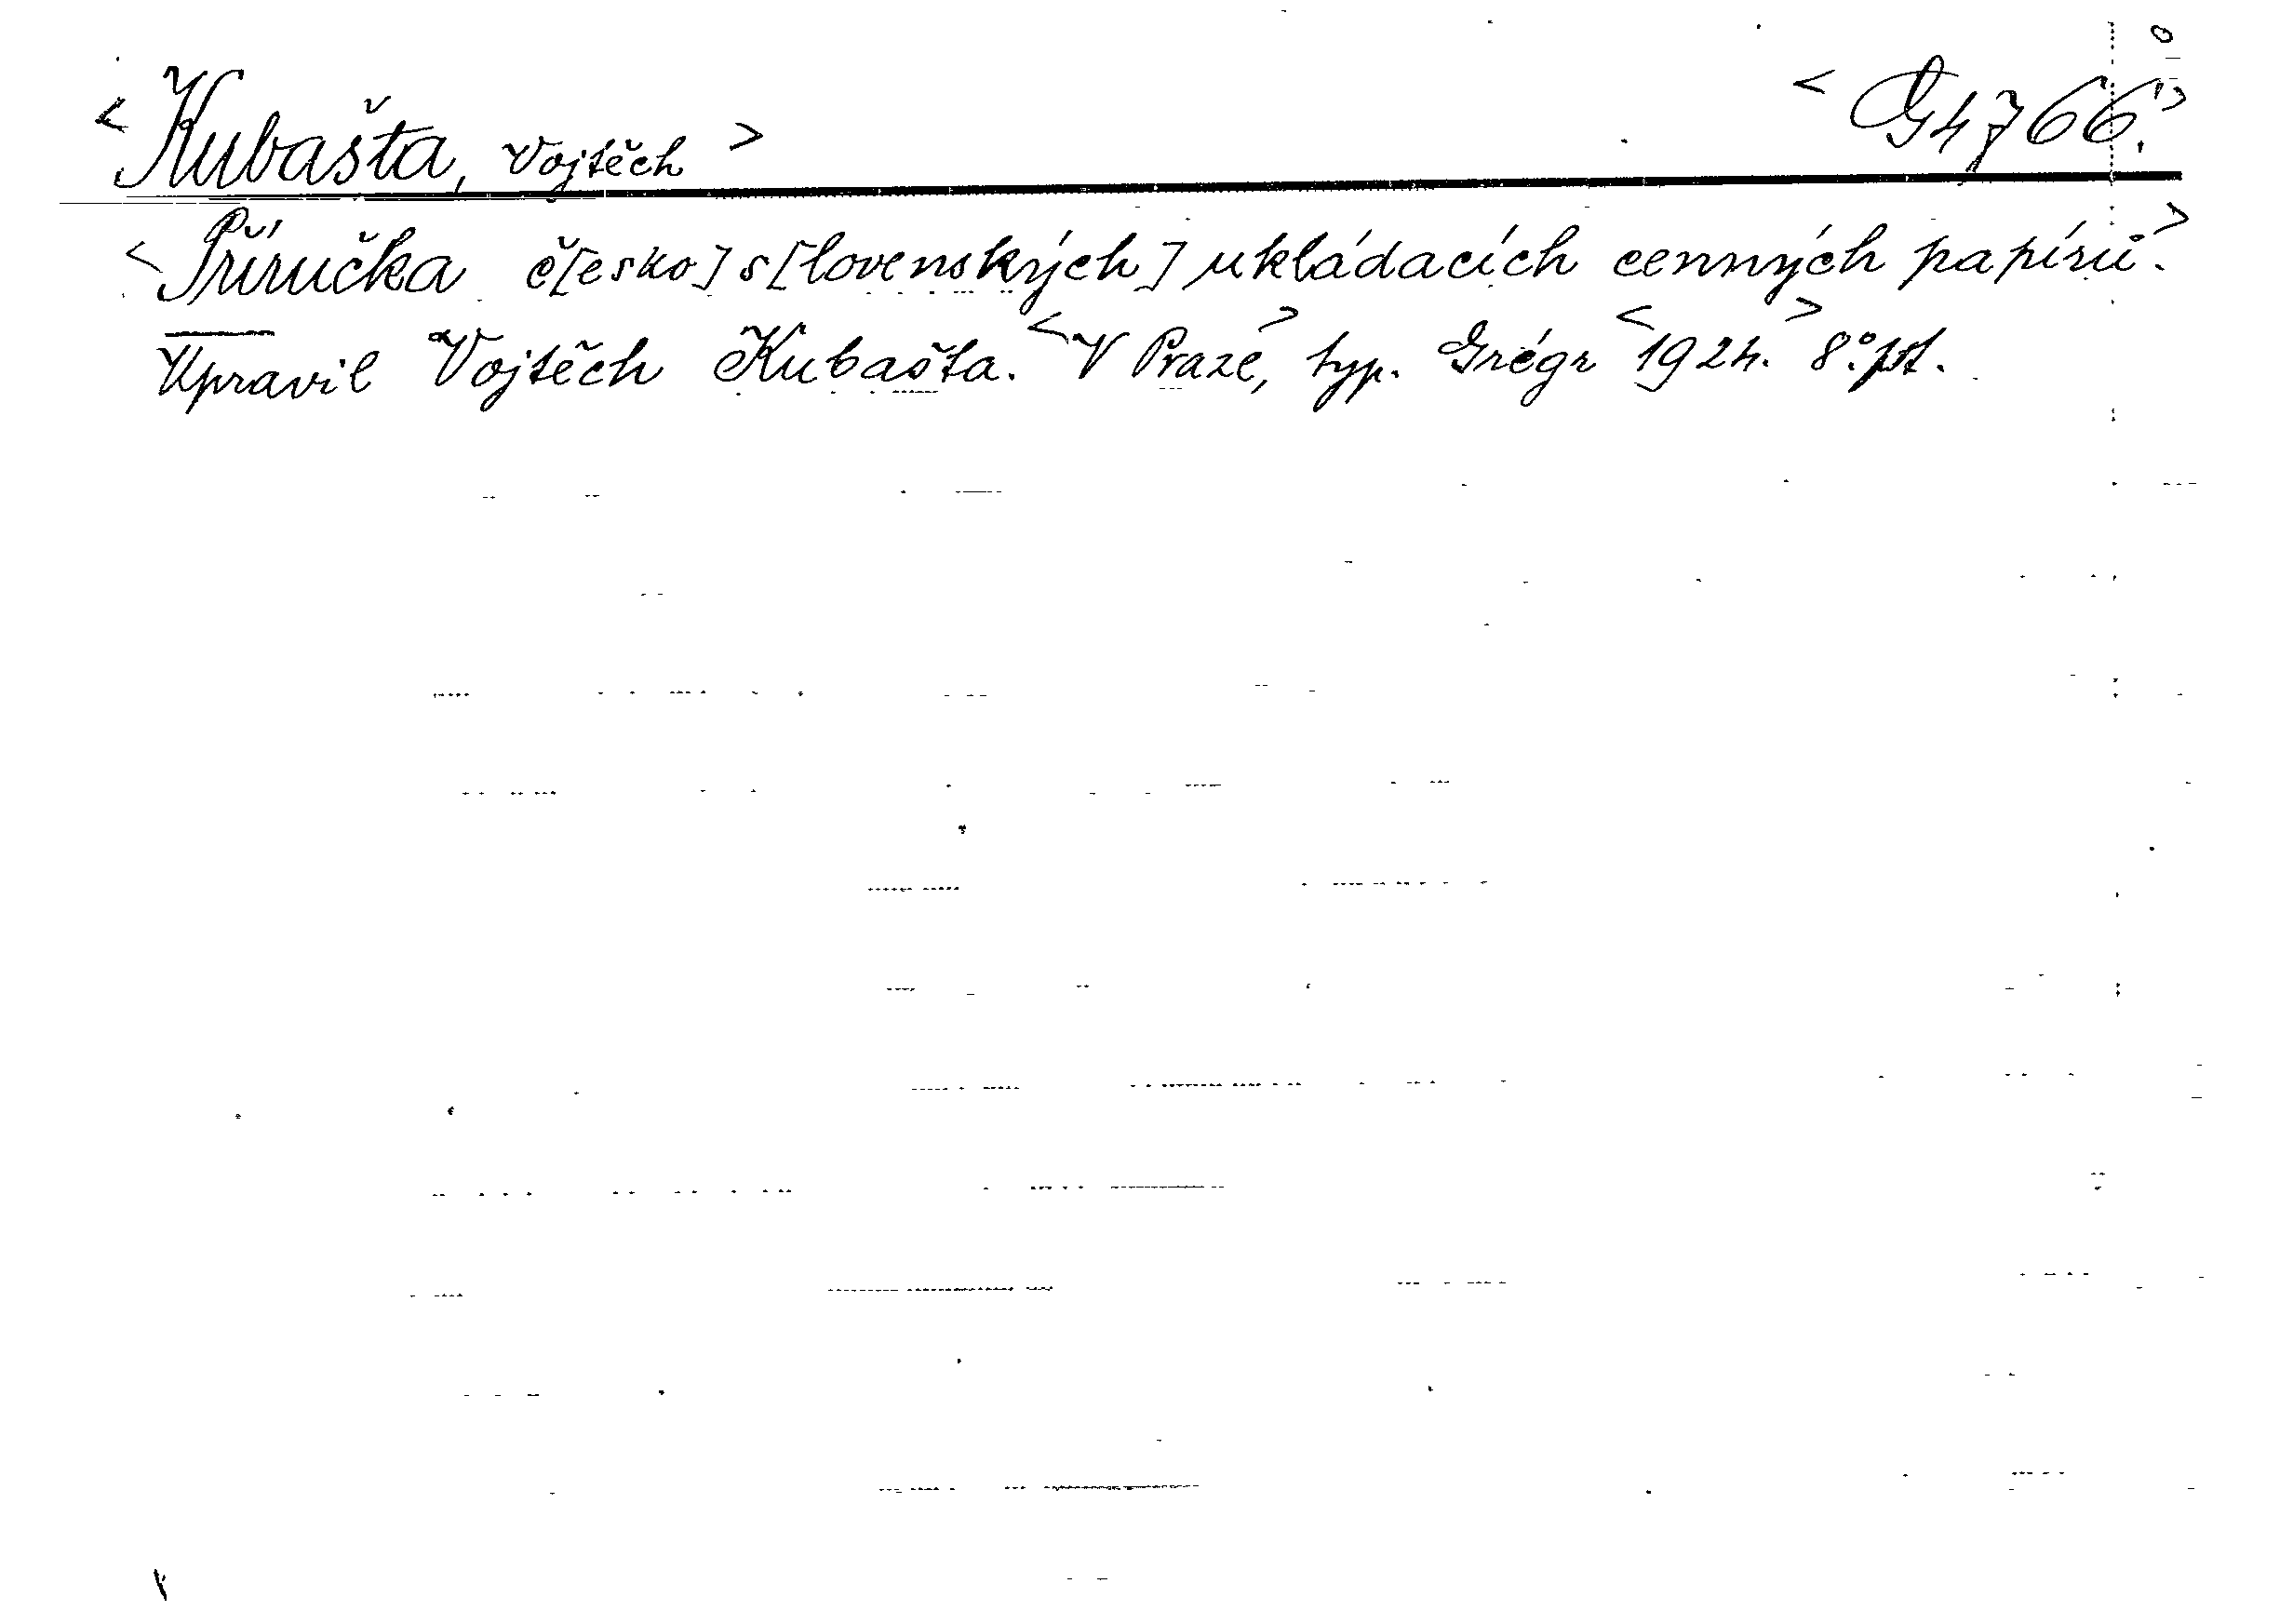 <Kubašta, Vojtěch> <G4766.>
<Příručka č[esko]s[lovenských] ukládacích cenných papírů.>
Upravil Vojtěch Kubašta. <V Praze,> typ. Grégr <1924.> 8° pst.